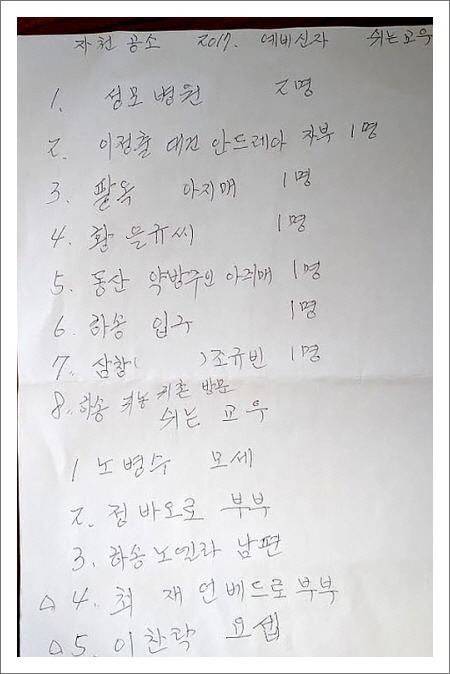 자천 공소 2017. 예비신자 쉬는교우
1. 성모병원 2명
2. 이정출 대건 안드레아 자부 1명
3. 팔옥 아지매 1명
4. 황 믄규씨 1명
5. 동산 약방주인 아지매 1명
6. 하송 입구 1명
7. 삼창( )조규빈 1명
8. 하송 귀농 귀촌 방문
쉬는 교우
1 노병수 모세
2. 정 바오로 부부
3. 하송노엘라 남편
△ 4. 최 재 언 베드로 부부
△ 5. 이찬락 요셉